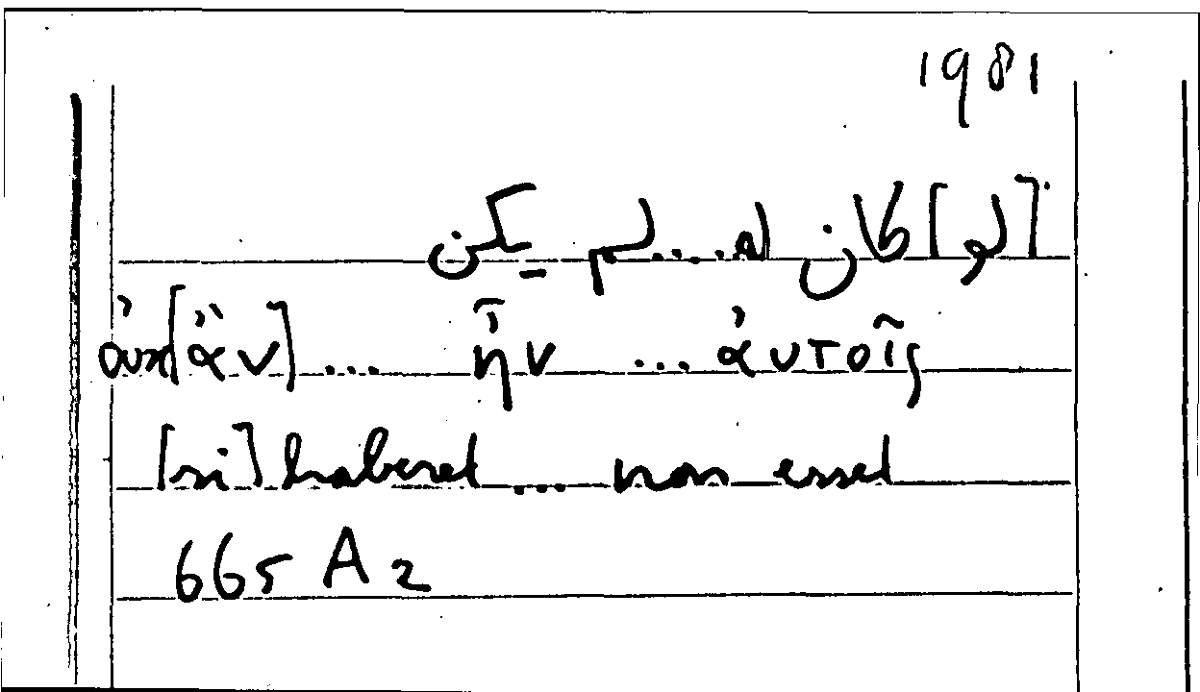 1981
[لو] كان له....لم يكن
οὐκ[ἂν].... ἦν ... ἀυτοῖς
[si] haberet .... non esset
665 A 2